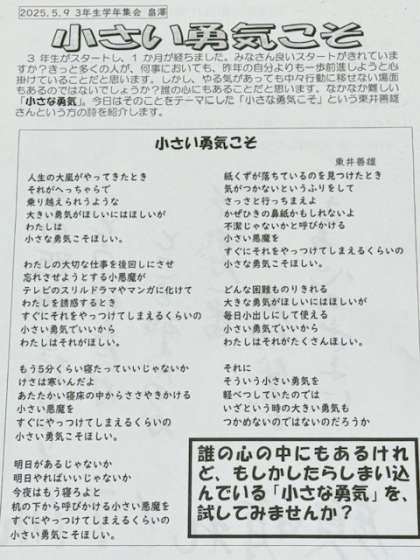 2025.5.9 3年生学年集会 畠澤
小さい勇気こそ
3年生がスタートし、1か月が経ちました。みなさん良いスタートがきれていま
すか？きっと多くの人が、何事においても、昨年の自分よりも一歩前進しようと心
掛けていることだと思います。しかし、やる気があっても中々行動に移せない場面
もあるのではないでしょうか？誰の心にもあることだと思います。なかなか難しい
「小さな勇気」。今日はそのことをテーマにした「小さな勇気こそ」という東井善雄
さんという方の詩を紹介します。
小さい勇気こそ
東井善雄
人生の大嵐がやってきたとき
それがへっちゃらで
乗り越えられうような
大きい勇気がほしいにはほしいが
わたしは
小さな勇気こそほしい。
わたしの大切な仕事を後回しにさせ
忘れさせようとする小悪魔が
テレビのスリルドラマやマンガに化けて
わたしを誘惑するとき
すぐにそれをやっつけてしまえるくらいの
小さい勇気でいいから
わたしはそれがほしい。
もう5分くらい寝たっていいじゃないか
けさは寒いんだよ
あたたかい寝床の中からささやきかける
小さい悪魔を
すぐにやっつけてしまえるくらいの
小さい勇気こそほしい。
明日があるじゃないか
明日やればいいじゃないか
今夜はもう寝ろよと
机の下から呼びかける小さい悪魔を
すぐにやっつけてしまえるくらいの
小さい勇気こそほしい。
紙くずが落ちているのを見つけたとき
気がつかないというふりをして
さっさと行っちまえよ
かぜひきの鼻紙かもしれないよ
不潔じゃないかと呼びかける
小さい悪魔を
すぐにそれをやっつけてしまえるくらいの
小さな勇気こそほしい。
どんな困難ものりきれる
大きな勇気がほしいにはほしいが
毎日小出しにして使える
小さい勇気でいいから
わたしはそれがたくさんほしい。
それに
そういう小さい勇気を
軽べつしていたのでは
いざという時の大きい勇気も
つかめないのではないのだろうか
誰の心の中にもあるけれ
ど、もしかしたらしまい込
んでいる「小さな勇気」を、
試してみませんか？